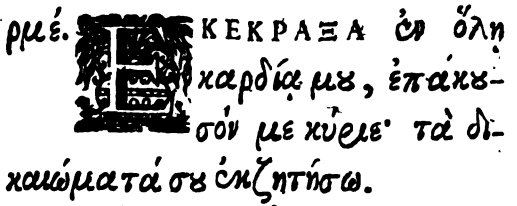 ρμέ. ΕΚΕΚΡΑΞΑ ἐν ὅλῃ
καρδίᾳ μου, ἐπάκου-
σόν με κύριε· τὰ δι-
καιώματά σου ἐκζητήσω.